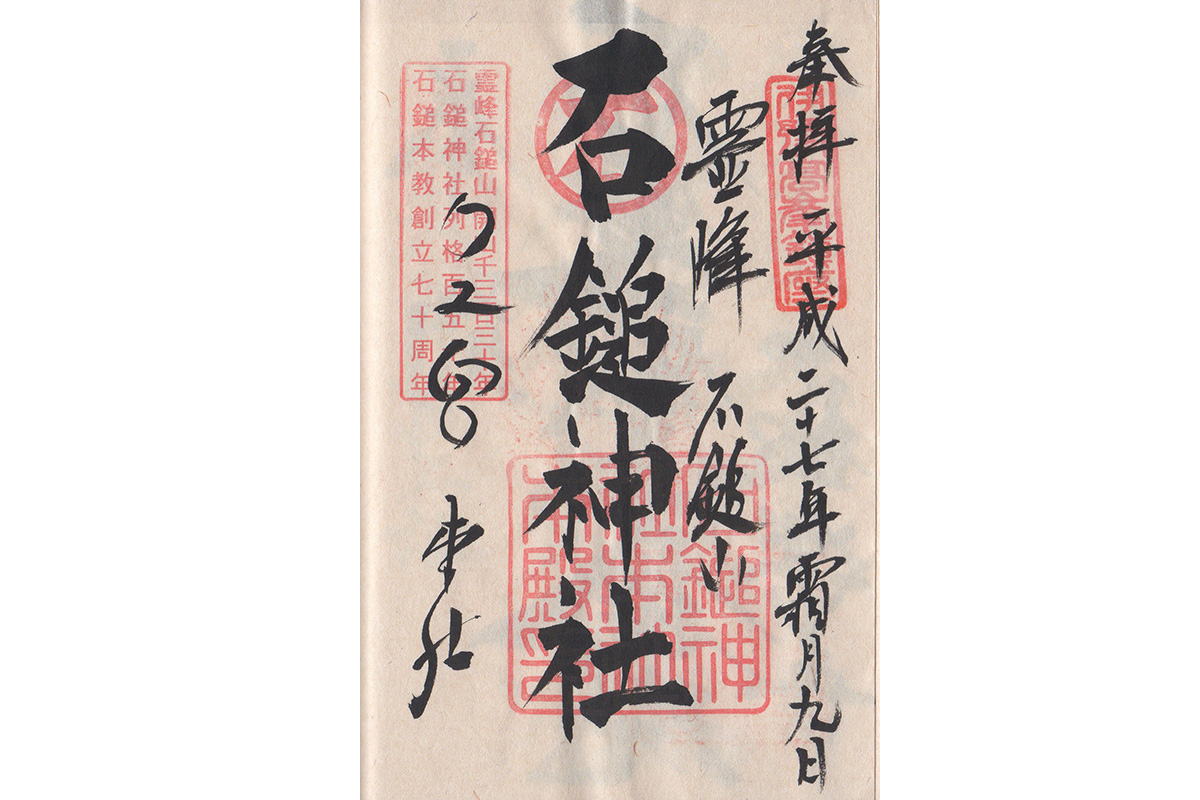 奉拝 平成二十七年霜月九日
霊峰 石鎚山
石鎚神社
口之宮 本社
霊峰石鎚山開山千三百三十年
石鎚神社列格百五十年
石鎚本教創立七十周年
石鎚神社本社本殿之印